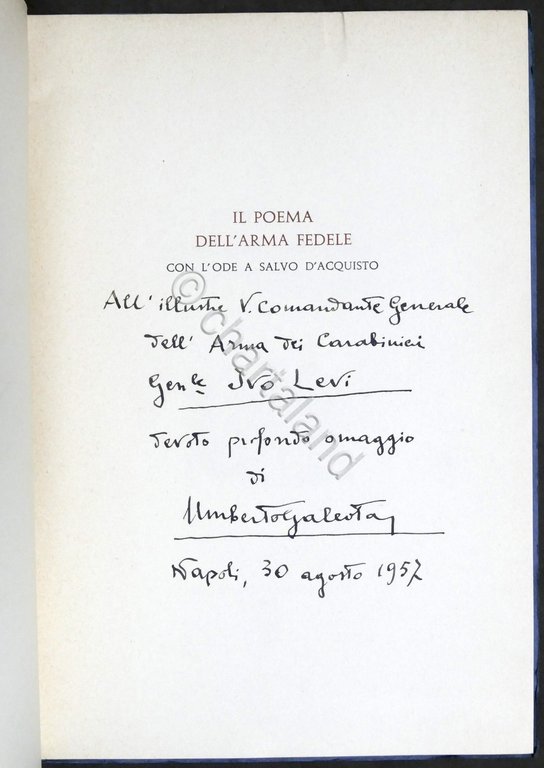 IL POEMA
DELL'ARMA FEDELE
CON L'ODE A SALVO D'ACQUISTO
All'illustre V. Comandante Generale
dell'Arma dei Carabinieri
Gen.le Ivo Levi
devoto profondo omaggio
di
Umberto Galeota
Napoli, 30 agosto 1957
© chartaland